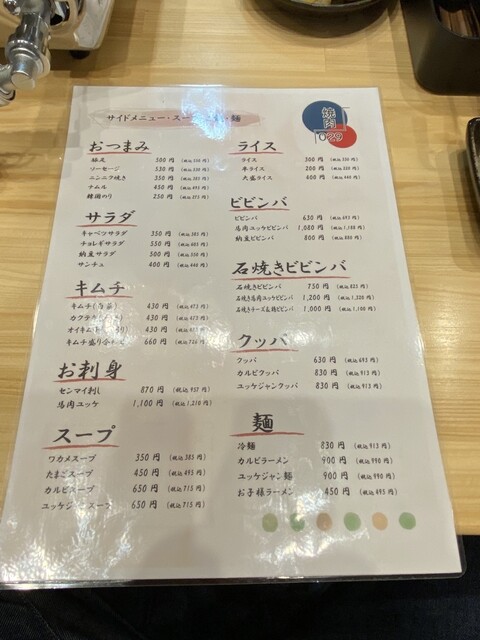 サイドメニュー・スープ・麺
焼肉
029
おつまみ
豚足 500円 (税込550円)
ソーセージ 530円
ニンニク焼き 350円 (税込385円)
ナムル 450円 (税込495円)
韓国のり 250円 (税込275円)
サラダ
キャベツサラダ 350円 (税込385円)
チョレギサラダ 550円 (税込605円)
納豆サラダ 500円 (税込550円)
サンチュ 400円 (税込440円)
キムチ
キムチ(白菜) 430円 (税込473円)
カクテキ 430円 (税込473円)
オイキムチ 430円 (税込473円)
キムチ盛り合わせ 660円 (税込726円)
お刺身
センマイ刺し 870円 (税込957円)
馬肉ユッケ 1,100円 (税込1,210円)
スープ
ワカメスープ 350円 (税込385円)
たまごスープ 450円 (税込495円)
カルビスープ 650円 (税込715円)
ユッケジャンスープ 650円 (税込715円)
ライス
ライス 300円 (税込330円)
半ライス 200円 (税込220円)
大盛ライス 400円 (税込440円)
ビビンバ
ビビンバ 630円 (税込693円)
馬肉ユッケビビンバ 1,080円 (税込1,188円)
納豆ビビンバ 800円 (税込880円)
石焼きビビンバ
石焼きビビンバ 750円 (税込825円)
石焼き馬肉ユッケビビンバ 1,200円 (税込1,320円)
石焼きチーズ&鶏ビビンバ 1,000円 (税込1,100円)
クッパ
クッパ 630円 (税込693円)
カルビクッパ 830円 (税込913円)
ユッケジャンクッパ 830円 (税込913円)
麺
冷麺 830円 (税込913円)
カルビラーメン 900円 (税込990円)
ユッケジャン麺 900円 (税込990円)
お子様ラーメン 450円 (税込495円)